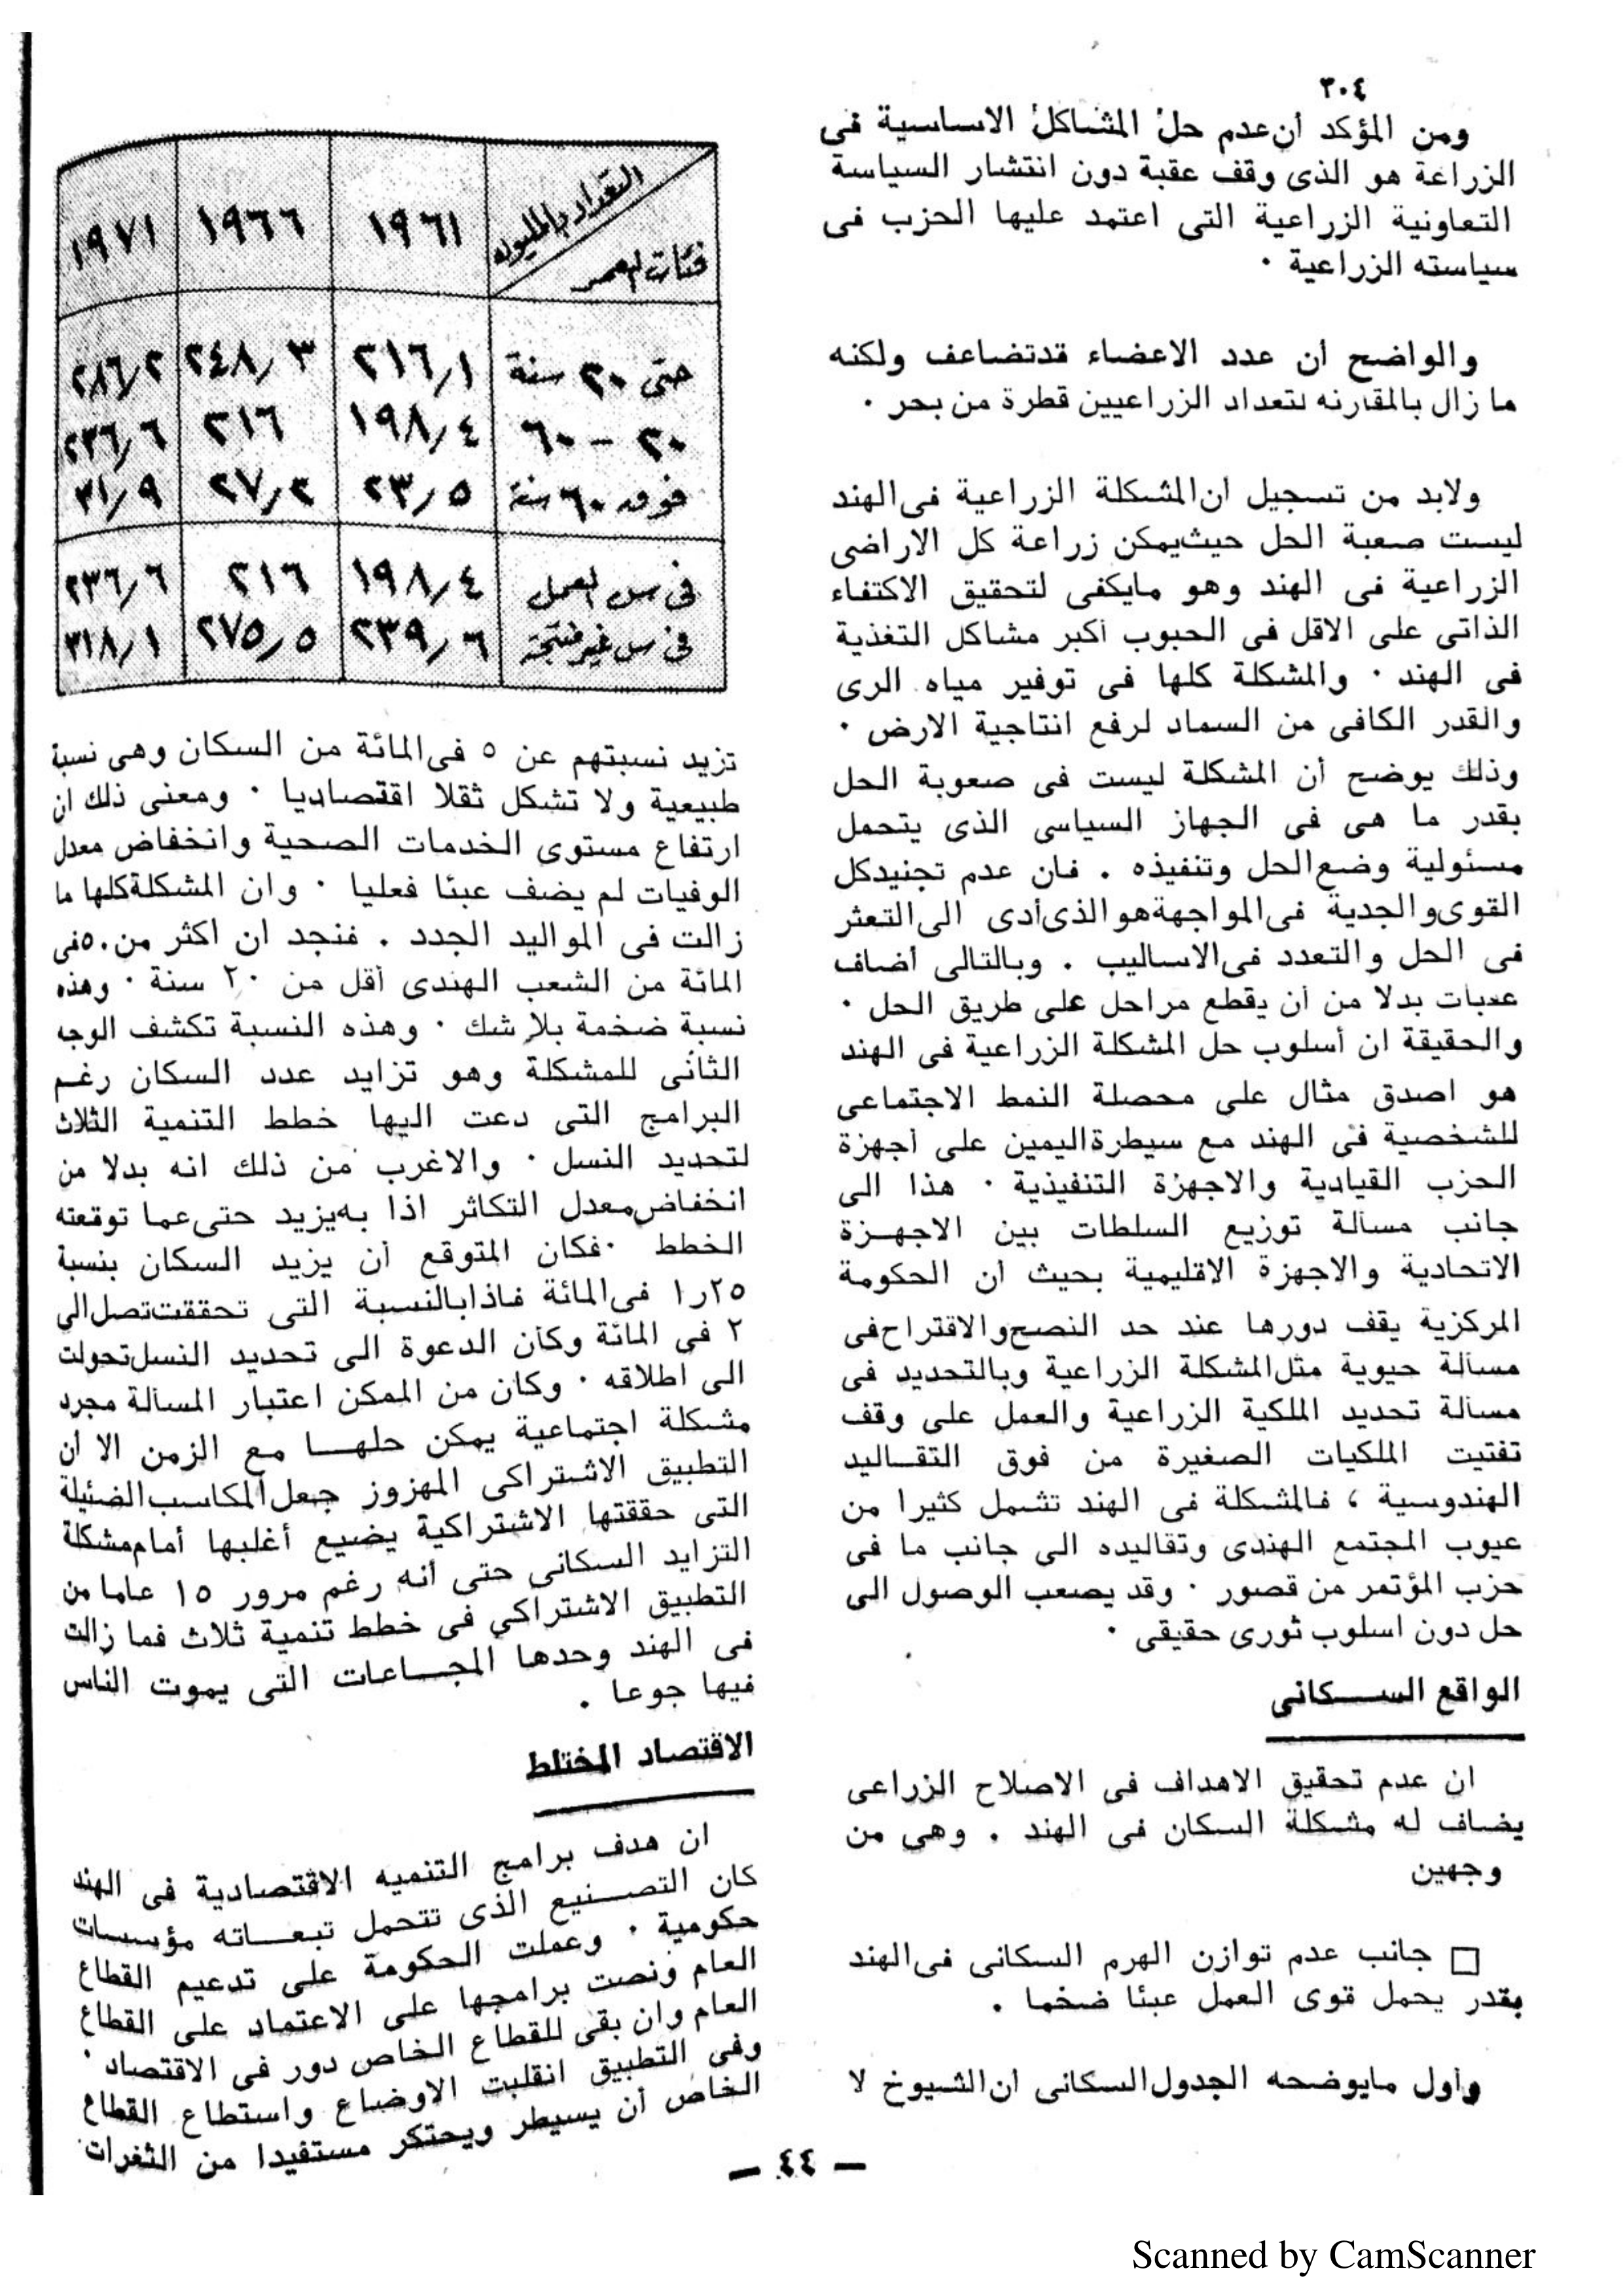 ٣٠٤
ومن المؤكد أن عدم حل المشاكل الاساسية فى
الزراعة هو الذى وقف عقبة دون انتشار السياسة
التعاونية الزراعية التى اعتمد عليها الحزب فى
سياسته الزراعية ٠
والواضح ان عدد الاعضاء قد تضاعف ولكنه
ما زال بالمقارنه لتعداد الزراعيين قطرة من بحر ٠
ولابد من تسجيل ان المشكلة الزراعية فى الهند
ليست صعبة الحل حيث يمكن زراعة كل الاراضى
الزراعية فى الهند وهو مايكفى لتحقيق الاكتفاء
الذاتى على الاقل فى الحبوب أكبر مشاكل التغذية
فى الهند ٠ والمشكلة كلها فى توفير مياه الرى
والقدر الكافى من السماد لرفع انتاجية الارض ٠
وذلك يوضح أن المشكلة ليست فى صعوبة الحل
بقدر ما هى فى الجهاز السياسى الذى يتحمل
مسئولية وضع الحل وتنفيذه . فان عدم تجنيد كل
القوى والجدية فى المواجهة هو الذى أدى الى التعثر
فى الحل والتعدد فى الاساليب . وبالتالى أضاف
عقبات بدلا من أن يقطع مراحل على طريق الحل ٠
والحقيقة ان أسلوب حل المشكلة الزراعية فى الهند
هو اصدق مثال على محصلة النمط الاجتماعى
للشخصية فى الهند مع سيطرة اليمين على أجهزة
الحزب القيادية والاجهزة التنفيذية ٠ هذا الى
جانب مسألة توزيع السلطات بين الاجهزة
الاتحادية والاجهزة الاقليمية بحيث أن الحكومة
المركزية يقف دورها عند حد النصح والاقتراح فى
مسألة حيوية مثل المشكلة الزراعية وبالتحديد فى
مسألة تحديد الملكية الزراعية والعمل على وقف
تفتيت الملكيات الصغيرة من فوق التقاليد
الهندوسية ، فالمشكلة فى الهند تشمل كثيرا من
عيوب المجتمع الهندى وتقاليده الى جانب ما فى
حزب المؤتمر من قصور ٠ وقد يصعب الوصول الى
حل دون اسلوب ثورى حقيقى ٠
الواقع السكانى
ان عدم تحقيق الاهداف فى الاصلاح الزراعى
يضاف له مشكلة السكان فى الهند . وهى من
وجهين
□ جانب عدم توازن الهرم السكانى فى الهند
بقدر يحمل قوى العمل عبئا ضخما .
وأول مايوضحه الجدول السكانى ان الشيوخ لا
التعداد بالمليون
فئات العمر ١٩٦١ ١٩٦٦ ١٩٧١
حتى ٢٠ سنة ٢١٦٫١ ٢٤٨٫٣ ٢٨٦٫٢
٢٠ – ٦٠ ١٩٨٫٤ ٢١٦ ٢٣٦٫٦
فوق ٦٠ سنة ٢٣٫٥ ٢٧٫٢ ٣١٫٩
فى سن العمل ١٩٨٫٤ ٢١٦ ٢٣٦٫٦
فى سن غير منتجة ٢٣٩٫٦ ٢٧٥٫٥ ٣١٨٫١
تزيد نسبتهم عن ٥ فى المائة من السكان وهى نسبة
طبيعية ولا تشكل ثقلا اقتصاديا ٠ ومعنى ذلك ان
ارتفاع مستوى الخدمات الصحية وانخفاض معدل
الوفيات لم يضف عبئا فعليا ٠ وان المشكلة كلها ما
زالت فى المواليد الجدد . فنجد ان اكثر من ٥٠ فى
المائة من الشعب الهندى أقل من ٢٠ سنة ٠ وهذه
نسبة ضخمة بلا شك ٠ وهذه النسبة تكشف الوجه
الثانى للمشكلة وهو تزايد عدد السكان رغم
البرامج التى دعت اليها خطط التنمية الثلاث
لتحديد النسل ٠ والاغرب من ذلك انه بدلا من
انخفاض معدل التكاثر اذا به يزيد حتى عما توقعته
الخطط ٠ فكان المتوقع أن يزيد السكان بنسبة
١٫٢٥ فى المائة فاذا بالنسبة التى تحققت تصل الى
٢ فى المائة وكأن الدعوة الى تحديد النسل تحولت
الى اطلاقه ٠ وكان من الممكن اعتبار المسألة مجرد
مشكلة اجتماعية يمكن حلها مع الزمن الا أن
التطبيق الاشتراكى المهزوز جعل المكاسب الضئيلة
التى حققتها الاشتراكية يضيع أغلبها أمام مشكلة
التزايد السكانى حتى أنه رغم مرور ١٥ عاما من
التطبيق الاشتراكي فى خطط تنمية ثلاث فما زالت
فى الهند وحدها المجاعات التى يموت الناس
فيها جوعا .
الاقتصاد المختلط
ان هدف برامج التنميه الاقتصادية فى الهند
كان التصنيع الذى تتحمل تبعاته مؤسسات
حكومية ٠ وعملت الحكومة على تدعيم القطاع
العام ونصت برامجها على الاعتماد على القطاع
العام وان بقى للقطاع الخاص دور فى الاقتصاد ٠
وفى التطبيق انقلبت الاوضاع واستطاع القطاع
الخاص أن يسيطر ويحتكر مستفيدا من الثغرات
– ٤٤ –
Scanned by CamScanner